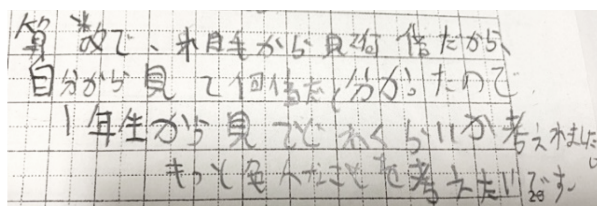 算数で、相手から見て何倍だから、
自分から見て何倍だと分かったので
1年生から見てどれくらいか考えれました。
もっと色んなことを考えたいです